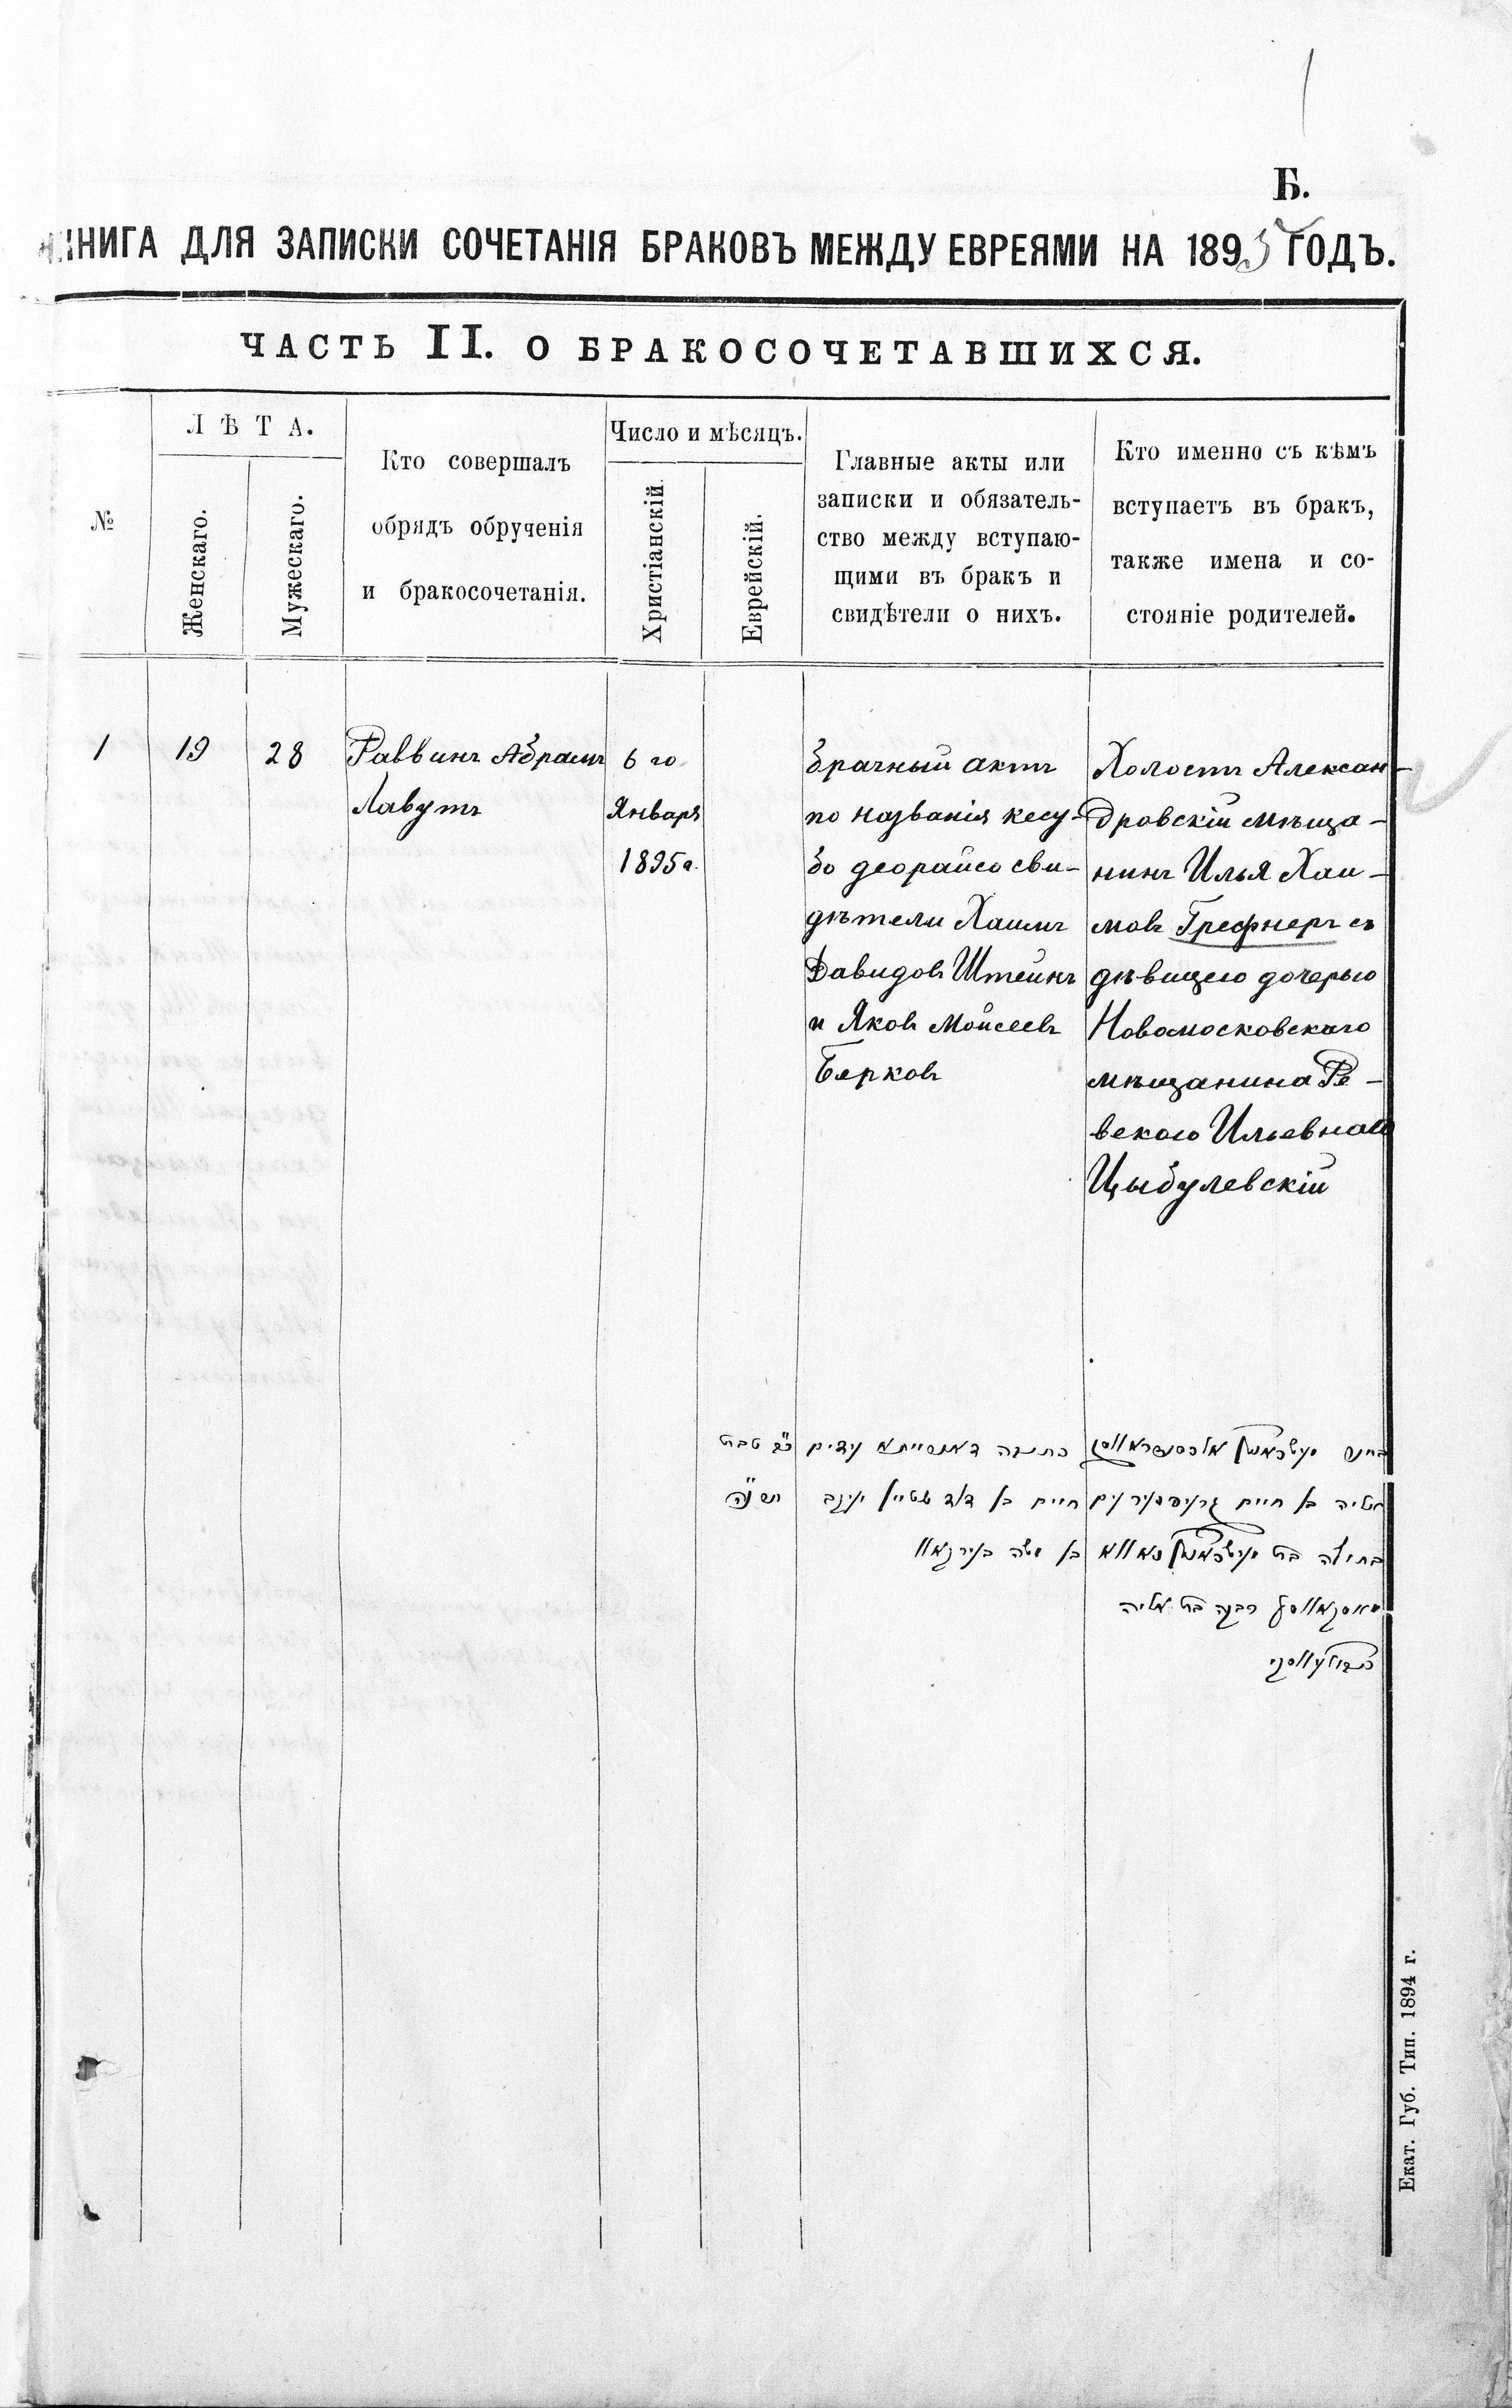 Б.
КНИГА ДЛЯ ЗАПИСКИ СОЧЕТАНІЯ БРАКОВЪ МЕЖДУ ЕВРЕЯМИ НА 1895 ГОДЪ.
ЧАСТЬ II. О БРАКОСОЧЕТАВШИХСЯ.
№
ЛѢТА.
Женскаго.
Мужескаго.
Кто совершалъ
обрядъ обрученія
и бракосочетанія.
Число и мѣсяцъ.
Христіанскій.
Еврейскій.
Главные акты или
записки и обязатель-
ство между вступаю-
щими въ бракъ и
свидѣтели о нихъ.
Кто именно съ кѣмъ
вступаетъ въ бракъ,
также имена и со-
стояніе родителей.
1
19
28
Раввинъ Абрамъ
Лавутъ
6 го
Января
1895 г.
брачный актъ
по названія кесу-
бо деорайсо сви-
дѣтели Хаимъ
Давидовъ Штейнъ
и Яковъ Мойсеевъ
Берковъ
Холостъ Алексан-
дровскій мѣща-
нинъ Илья Хаи-
мовъ Грефнеръ съ
дѣвицею дочерью
Новомосковскаго
мѣщанина Ре-
векою Ильевною
Цыбулевскій
כ״ב טבת
תרנ״ה
כתובה דאורייתא עדים
חיים בן דוד שטיין יעקב
בן משה
אליה בן חיים
בתולה בת
רבקה בת אליה
Екат. Губ. Тип. 1894 г.